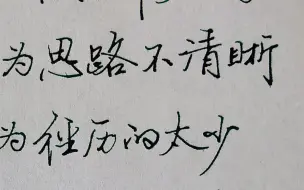 为思路不清晰
为经历的太少